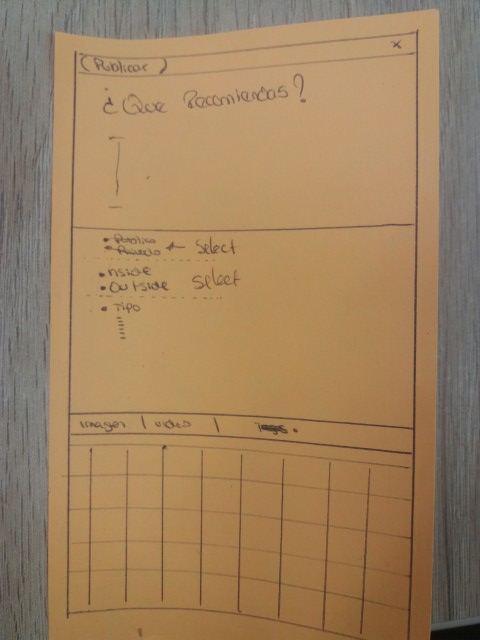 (Publicar) x
¿Que Recomiendas?
• Publico
• Privado ← Select
• nside
• Outside Select
• Tipo
imagen | video |